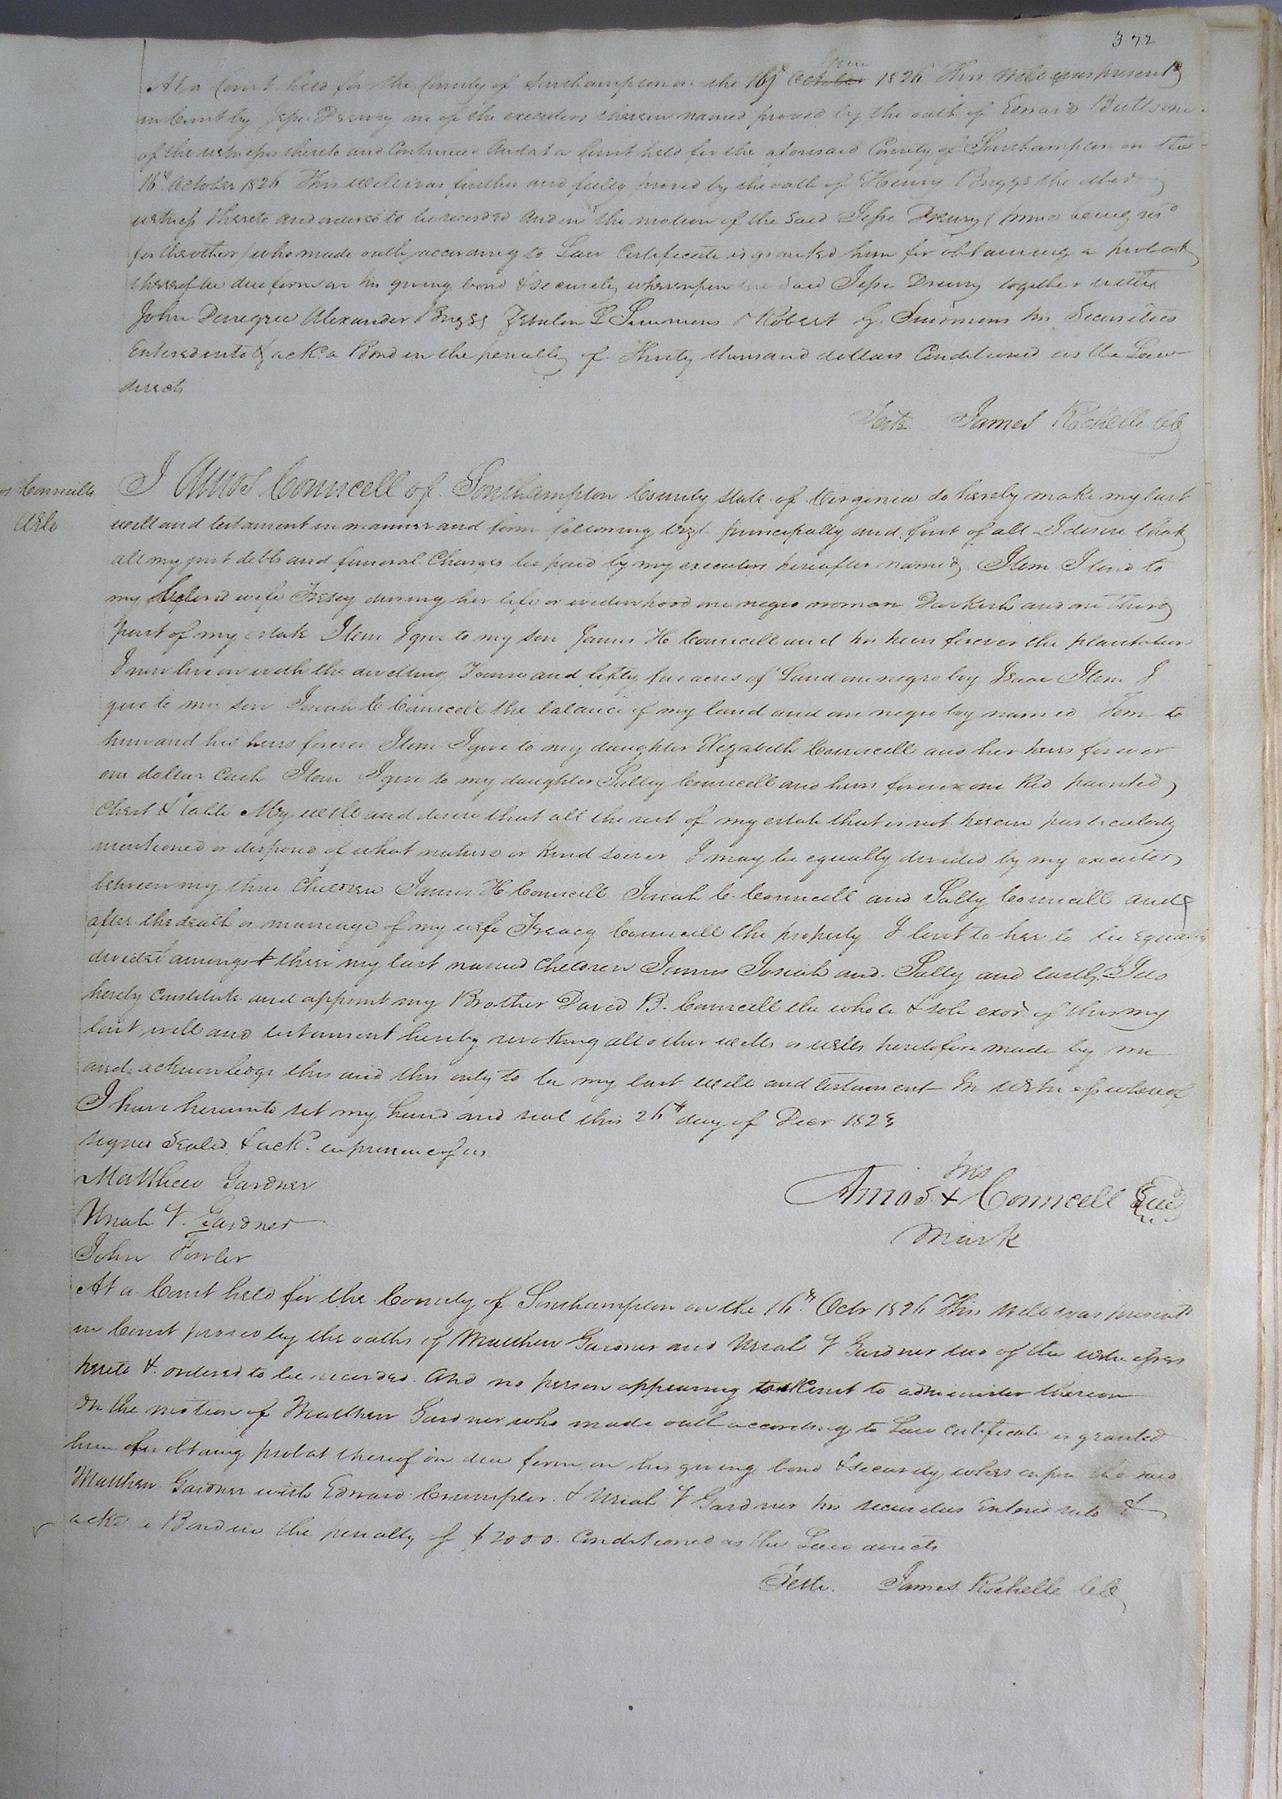 372
At a Court held for the County of Southampton on the 19th October June 1826 This will was presented
in Court by Jesse Drewry one of the executors therein named proved by the oath of Edward Butts one
of the witness thereto and Continued And at a Court held for the aforesaid County of Southampton on the
16th October 1826 This will was further and fully proved by the oath of Henry Briggs the other
witness thereto and ordered to be recorded And on the motion of the said Jesse Drewry (
for the other) who made oath according to Law Certificate is granted him for obtaining a probat
thereof in due form on his giving bond & security whereupon the said Jesse Drewry together with
John Denegree Alexander Briggs Zebulon Simmons & Robert G. Simmons his Securities
Entered into & ackd a Bond in the penalty of Thirty thousand dollars Conditioned as the Law
directs
Teste James Rochelle ClC
Councills
Will
I Amos Councell of Southampton County state of Virginia do hereby make my last
will and testament in manner and form following Viz principally and first of all I desire that
all my just debts and funeral Charges be paid by my executors hereafter named, Item I lend to
my beloved wife during her life or widowhood one negro woman Darkish and one third
part of my estate Item I give to my son James H Councell and his heirs forever the plantation
I now live on with the dwelling House and fifty five acres of Land one negro boy Isaac Item I
give to my son Josiah C Councell the balance of my land and one negro boy named Tom to
him and his heirs forever Item I give to my daughter Elizabeth Councell and her heirs forever
one dollar Cash Item I give to my daughter Sally Councell and heirs forever one Red painted
Chest & table My will and desire that all the rest of my estate that is not herein particularly
mentioned or disposed of what nature or kind soever I may be equally devided by my executor
between my three Children James H Councell Josiah C. Councell and Sally Councell and
after the death or marriage of my wife Councell the property I lent to her to be equally
devided amongst three my last named children James Josiah and Sally and lastly I do
hereby constitute and appoint my Brother David B. Councell the whole & sole exor of this my
last will and testament hereby revoking all other wills or wills heretofore made by me
and acknowledge this and this only to be my last will and testament In witness whereof
I have hereunto set my hand and seal this 26th day of Decr 182
signed Sealed & ackd in presence of us
Matthew Gardner
Uriah V. Gardner
John Fowler
his
Amos + Councell Seal
Mark
At a Court held for the County of Southampton on the 16th Octr 1826 This will was presentd
in Court proved by the oaths of Matthew Gardner and Uriah V Gardner two of the witnesses
hereto & ordered to be recorded. And no person appearing to administer thereon
On the motion of Matthew Gardner who made oath according to Law certificate is granted
him for obtaing probat thereof in due form on his giving bond & security whereupon the said
Matthew Gardner with Edward Crumpler & Uriah V Gardner his securities Entered into &
ackd a Bond in the penalty of $2000. Conditioned as the Law directs
Teste. James Rochelle ClC